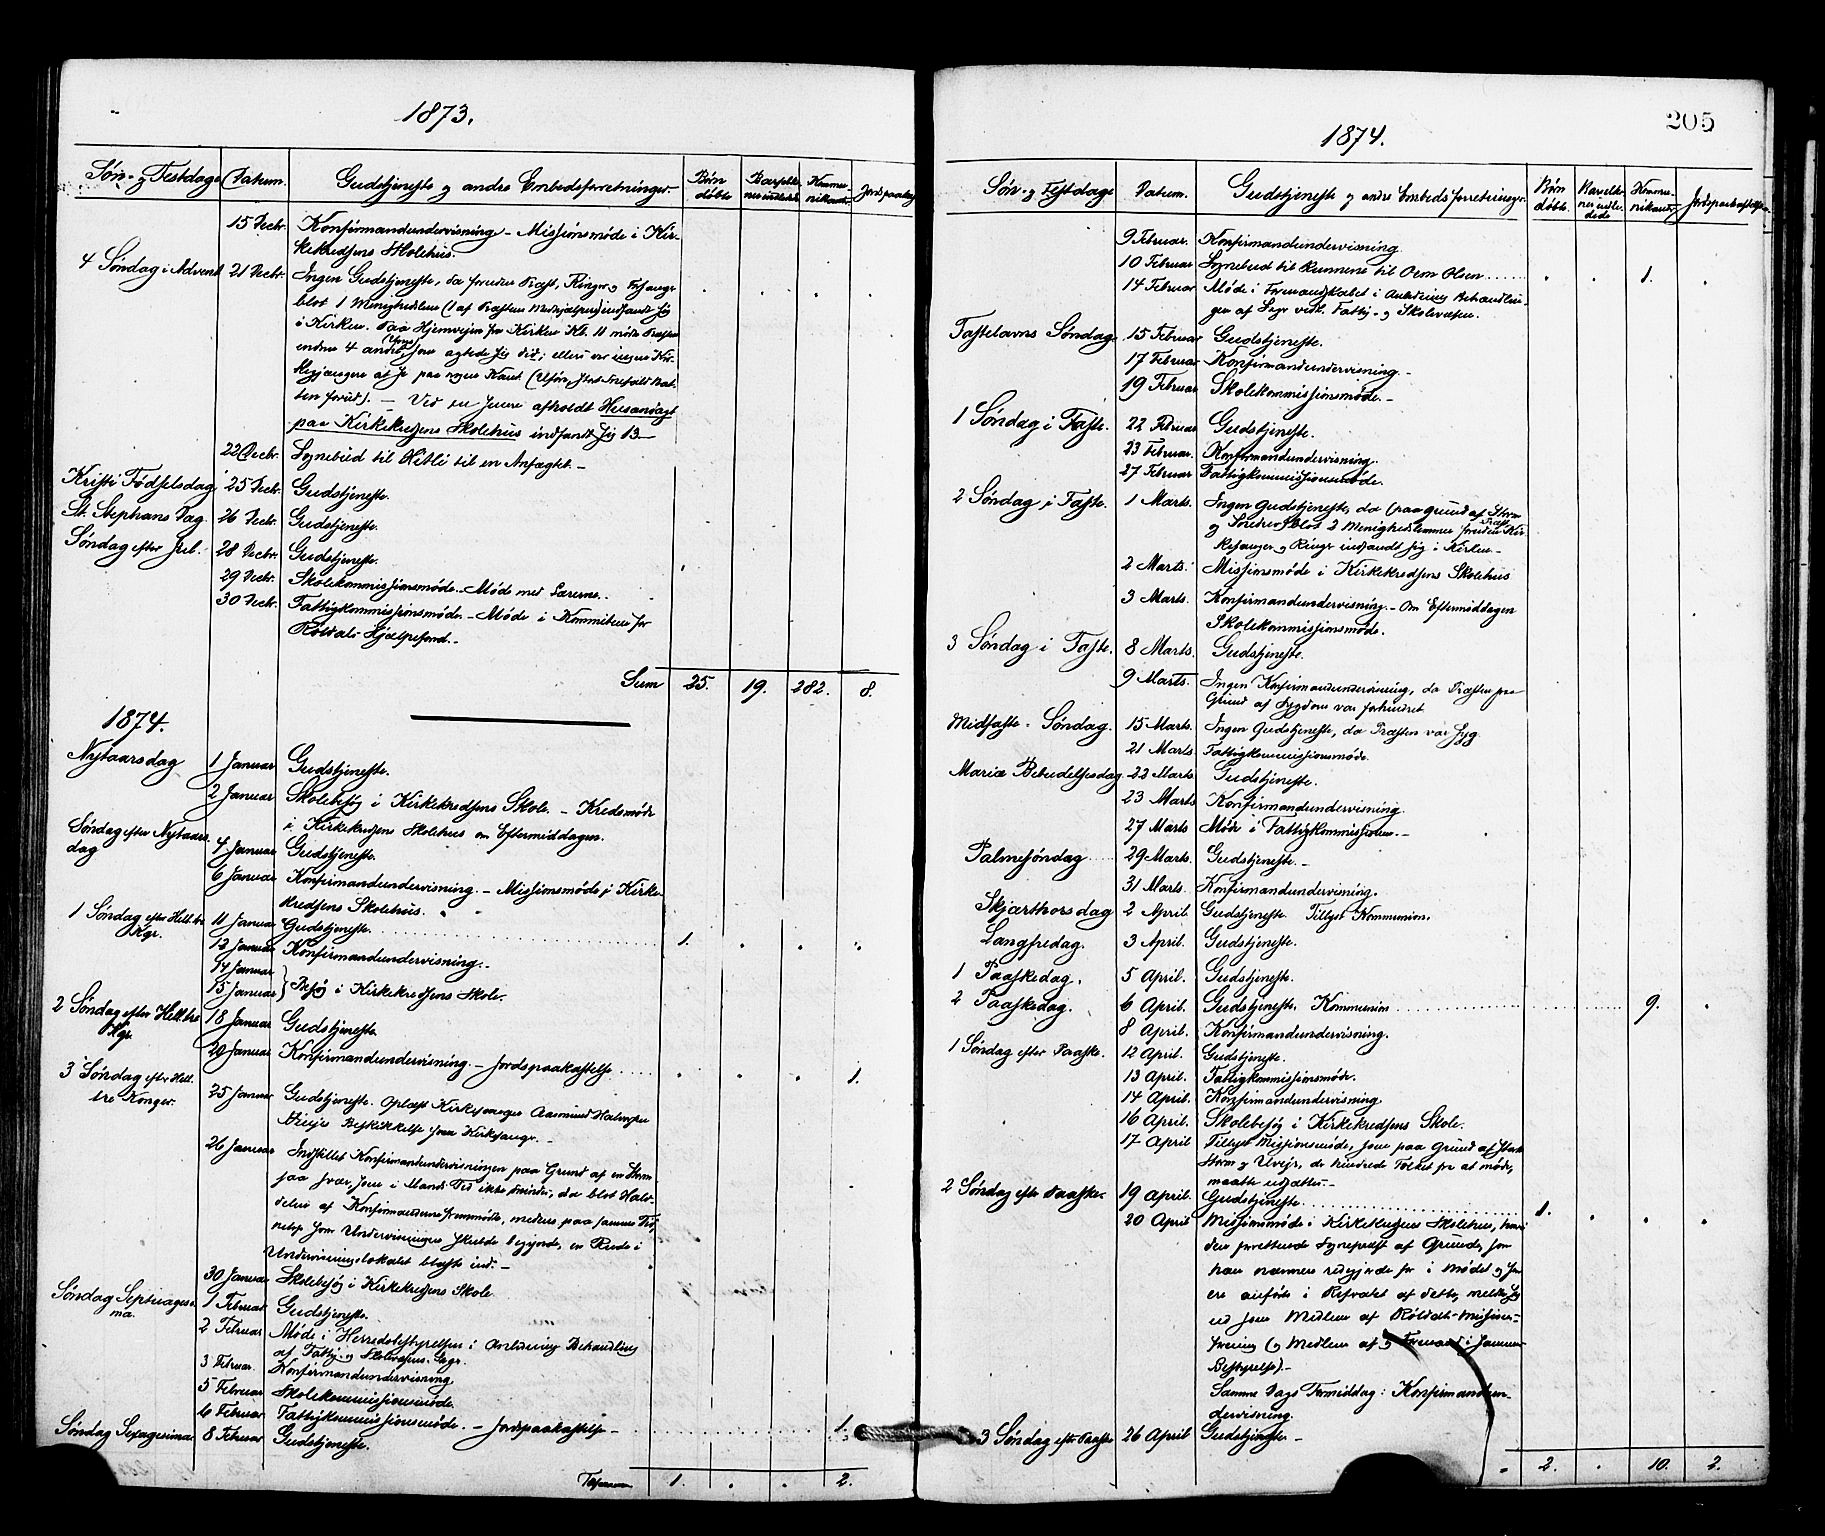 1873.
Søn- og Festdage Datum. Gudstjeneste og andre Embedsforretninger. Børn døbte Jordspaakast
15 Decbr. Konfirmandundervisning – Missionsmøde i Kir-
kekredsens Skolehus.
4 Søndag i Advent 21 Decbr. Ingen Gudstjeneste, da foruden Præst, Ringer og Forsanger
blot 1 Menighedslem (1 af Præstens Medhjælpere) indfandt sig
i Kirken. Paa Hjemveien fra Kirken Kl. 11 mødte Præsten
endnu 4 andre som agtede sig did; ellers var ingen Kir-
kegjængere at se paa nogen Kant
ten forud). – Ved en senere afholdt Husandagt
paa Kirkekredsens Skolehus indfandt sig 13 –
22 Decbr. Sognebud til en Anfægtet. –
Kristi Fødselsdag 25 Decbr. Gudstjeneste.
St. Stephans Dag. 26 Decbr. Gudstjeneste.
Søndag efter Jul. 28 Decbr. Gudstjeneste.
29 Decbr. Skolekommissionsmøde. – Møde med Lærerne. –
30 Decbr. Fattigkommissionsmøde. – Møde i Kommiteen for
Røldals Hjælpefond. –
Sum 25. 19. 282. 8.
1874.
Nytaarsdag 1 Januar Gudstjeneste.
2 Januar Skolebesøg i Kirkekredsens Skole. – Kredsmøde
i Kirkekredsens Skolehus om Eftermiddagen.
Søndag efter Nytaars-
dag 4 Januar Gudstjeneste.
6 Januar Konfirmandundervisning. – Missionsmøde i Kirke-
kredsens Skolehus.
1 Søndag efter Hell. tre
Kgr. 11 Januar Gudstjeneste. 1.
13 Januar Konfirmandundervisning. –
14 Januar
15 Januar } Besøg i Kirkekredsens Skole.
2 Søndag efter Hell. tre
Kgr. 18 Januar Gudstjeneste.
20 Januar Konfirmandundervisning. – Jordspaakastelse 1.
3 Søndag efter Hell.
tre Konger. 25 Januar Gudstjeneste. Oplæst Kirkesanger Aasmund
Beskikkelse som Kirkesanger. –
26 Januar Indstillet Konfirmandundervisningen paa Grund af en Storm
saa svær, som i Mands Tid ikke mindes, da blot Halv-
delen af Konfirmanderne fremmødte, medens paa samme Tid
netop som Undervisningen skulde begynde, en Rude i
Undervisningslokalet blæste ind. –
30 Januar Skolebesøg i Kirkekredsens Skole.
Søndag Septuagesi-
ma. 1 Februar Gudstjeneste.
2 Februar Møde i Herredsbestyrelsen i Anledning Behandling
af Fattig- og Skolevæsens Sager.
3 Februar. Konfirmandundervisning.
5 Februar Skolekommissionsmøde.
6 Februar. Fattigkommissionsmøde. – Jordspaakastelse – 1.
Søndag Sexagesima 8 Februar Gudstjeneste.
1. . . 2.
205
1874.
Søn- og Festdage Datum. Gudstjeneste og andre Embedsforretninger. Børn døbte. Jordspaakastelser
9 Februar. Konfirmandundervisning.
10 Februar Sognebud til Olsen . . 1. .
14 Februar Møde i Formandskabet i Anledning Behandlin-
gen af Sager vedk. Fattig- og Skolevæsen.
Fastelavns Søndag. 15 Februar Gudstjeneste.
17 Februar Konfirmandundervisning. –
19 Februar Skolekommissionsmøde. –
1 Søndag i Faste. 22 Februar Gudstjeneste.
23 Februar. Konfirmandundervisning.
27 Februar Fattigkommissionsmøde.
2 Søndag i Faste. 1 Marts. Ingen Gudstjeneste, da (paa Grund af Storm
og Snedrev) blot 2 Menighedslemmer foruden Præst, Kir-
kesanger og Ringer indfandt sig i Kirken. –
2 Marts. Missionsmøde i Kirkekredsens Skolehus
3 Marts. Konfirmandundervisning. – Om Eftermiddagen
Skolekommissionsmøde.
3 Søndag i Faste. 8 Marts. Gudstjeneste.
9 Marts. Ingen Konfirmandundervisning, da Præsten paa
Grund af Sygdom var forhindret
Midfaste-Søndag. 15 Marts. Ingen Gudstjeneste, da Præsten var syg.
21 Marts Fattigkommissionsmøde.
Mariæ Bebudelsesdag 22 Marts. Gudstjeneste.
23 Marts Konfirmandundervisning.
27 Marts Møde i Fattigkommissionen. –
Palmesøndag 29 Marts. Gudstjeneste. –
31 Marts. Konfirmandundervisning.
Skjærthorsdag 2 April. Gudstjeneste. Tillyst Kommunion.
Langfredag. 3 April. Gudstjeneste.
1 Paaskedag. 5 April. Gudstjeneste.
2 Paaskedag. 6 April. Gudstjeneste. Kommunion 9. .
8 April. Konfirmandundervisning.
1 Søndag efter Paaske. 12 April. Gudstjeneste.
13 April. Fattigkommissionsmøde.
14 April. Konfirmandundervisning.
16 April. Skolebesøg i Kirkekredsens Skole.
17 April Tillyst Missionsmøde, som paa Grund af stærk
Storm og Uveir, der hindrede Folket fra at møde,
maatte udsættes. –
2 Søndag efter Paaske. 19 April. Gudstjeneste. 1. . . .
20 April Missionsmøde i Kirkekredsens Skolehus, hvori
den forrettende Sognepræst af Grunde, som
han nærmere redegjorde for i Mødet og som
ere anførte i Referatet af dette, meldte sig
ud som Medlem af Røldals Missions-
forening (og Medlem af og Formand i sammes
Bestyrelse). –
Samme Dags Formiddag: Konfirmandun-
dervisning.
3 Søndag efter Paaske 26 April Gudstjeneste. –
2. . 10. 2.